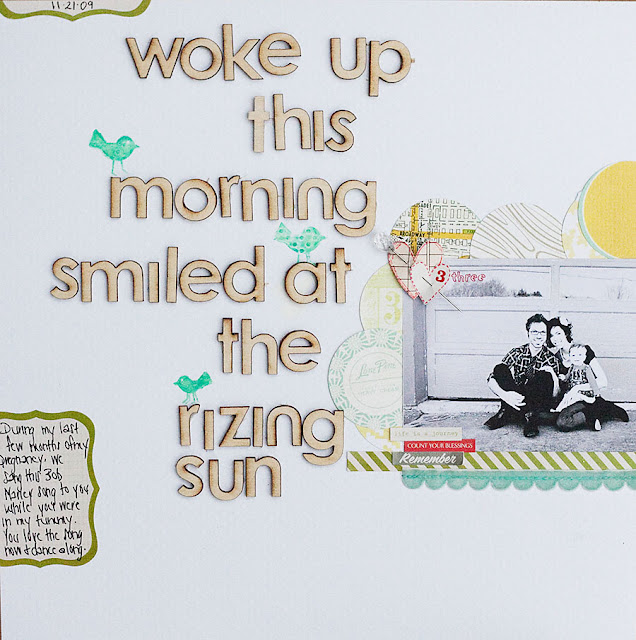 11·21·09
woke up
this
morning
smiled at
the
rizing
sun
BROADWAY
3 three
13
life is a journey
COUNT YOUR BLESSINGS
Remember
During my last
few months of my
pregnancy, we
this Bob
Marley song to you
while you were
in my tummy.
You love the song
now & dance along.